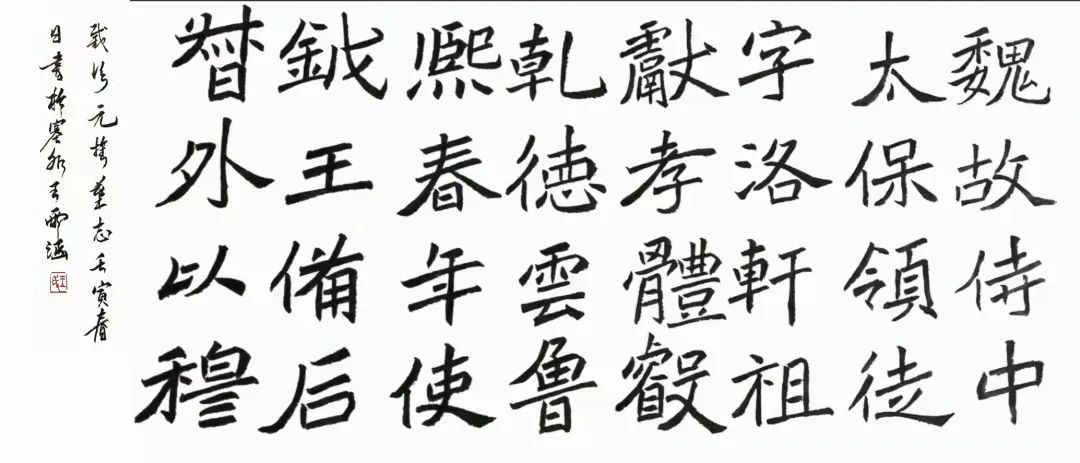 魏故侍中
太保領徒
字洛軒祖
獻孝體叡
乾德雲魯
熙春年使
鉞王備后
督外以穆
元墓志壬寅春
日書於王雨涵